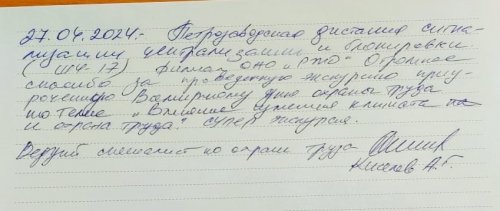 27.04.2024.- Петрозаводская дистанция сигна-
лизации централизации и блокировки.
(ШЧ-17) филиал ОАО "РЖД" Огромное
спасибо за проведенную экскурсию приу-
роченную Всемирному дню охраны труда
по теме "Влияние изменения климата на
и охрана труда." супер экскурсия.
Ведущий специалист по охране труда
Киселев А.Г.